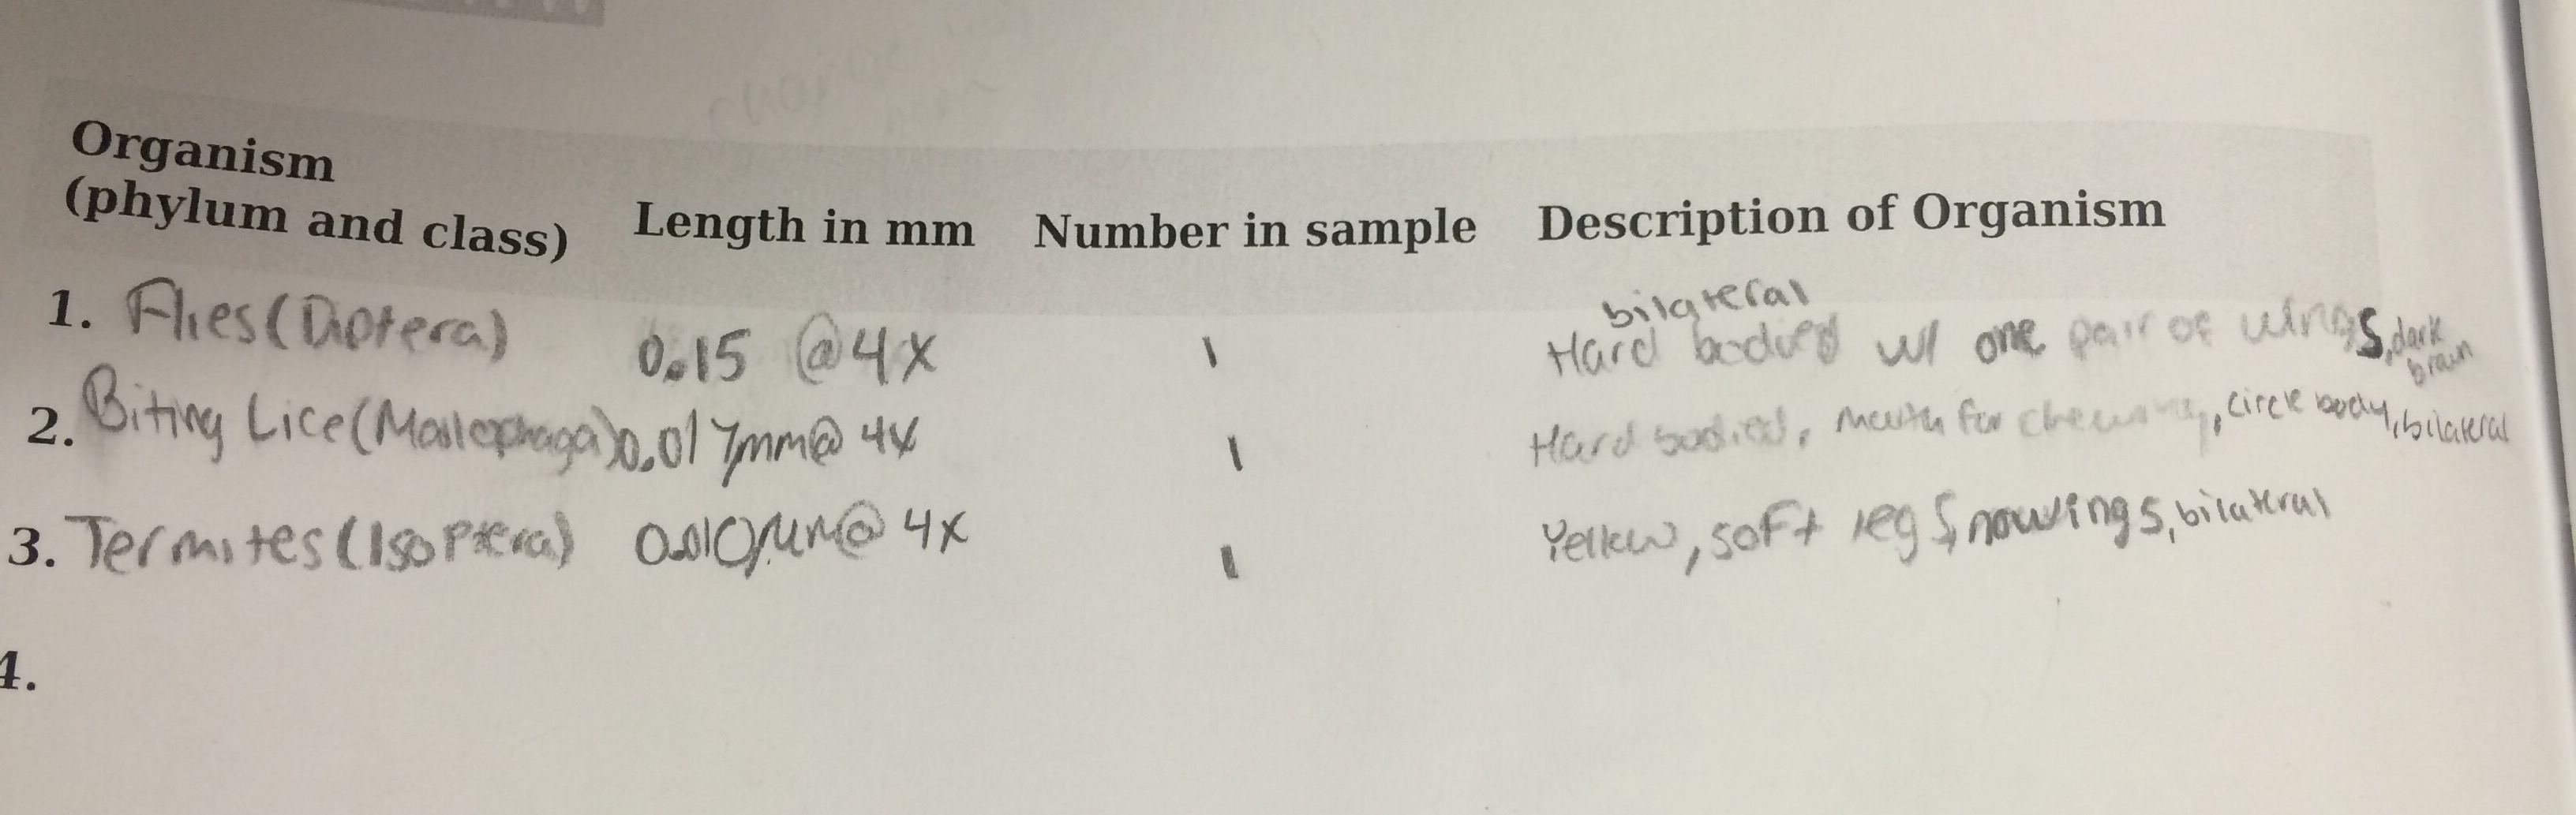 Organism
(phylum and class) Length in mm Number in sample Description of Organism
bilateral
1. Flies (Diptera) 0.15 @ 4x 1 Hard bodied w/ one pair of wings, dark
brown
2. Biting Lice (Mallophaga) 0.017mm@ 4x 1 Hard bodied, mouth for chewing, circle body, bilateral
3. Termites (Isoptera) 0.010 @ 4x 1 Yellow, soft legs, no wings, bilateral
4.